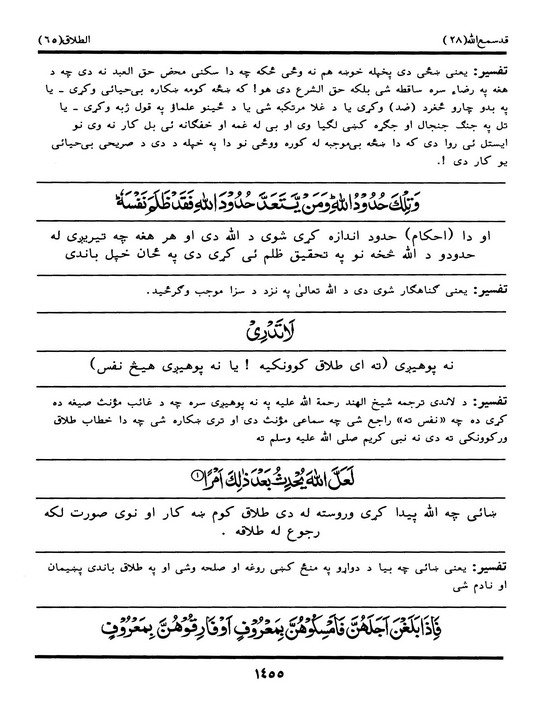 قدسمع الله (٢٨)
الطلاق (٦٥)
تفسیر: یعنی ښځی دی پخپله خوښه هم نه وځی ځکه چه دا سکنی محض حق العبد نه دی چه د
هغه په رضاء سره ساقطه شی بلکه حق الشرع دی هو! که ښځه کومه ښکاره بی‌حیائی وکړی ـ یا
په بدو چارو ځنفرد (ضد) وکړی یا د غلا مرتکبه شی یا د ځینو علماؤ په قول ژبه وکړی ـ یا
تل په جنگ جنجال او جگړه کښی لگیا وی او بی له غمه او خفگانه ئی بل کار نه وی نو
ایستل ئی روا دی که دا ښځه بی‌موجبه له کوره ووځی نو دا په خپله د دی د صریحی بی‌حیائی
یو کار دی !.
وَتِلْكَ حُدُوْدُ اللّٰهِ وَمَنْ يَّتَعَدَّ حُدُوْدَ اللّٰهِ فَقَدْ ظَلَمَ نَفْسَهٗ
او دا (احکام) حدود اندازه کړی شوی د الله دی او هر هغه چه تیریږی له
حدودو د الله څخه نو په تحقیق ظلم ئی کړی دی په ځان خپل باندی
تفسیر: یعنی گناهگار شوی دی د الله تعالیٰ په نزد د سزا موجب وگرځید.
لَا تَدْرِیْ
نه پوهیږی (ته ای طلاق کوونکیه ! یا نه پوهیږی هیڅ نفس)
تفسیر: د لاندی ترجمه شیخ الهند رحمة الله علیه په نه پوهیږی سره چه د غائب مؤنث صیغه ده
کړی ده چه «نفس ته» راجع شی چه سماعی مؤنث دی او تری ښکاره شی چه دا خطاب طلاق
ورکوونکی ته دی نه نبی کریم صلی الله علیه وسلم ته
لَعَلَّ اللّٰهَ يُحْدِثُ بَعْدَ ذٰلِكَ اَمْرًا ①
ښائی چه الله پیدا کړی وروسته له دی طلاق کوم ښه کار او نوی صورت لکه
رجوع له طلاقه .
تفسیر: یعنی ښائی چه بیا د دواړو په منځ کښی روغه او صلحه وشی او په طلاق باندی پښیمان
او نادم شی
فَاِذَا بَلَغْنَ اَجَلَهُنَّ فَاَمْسِكُوْهُنَّ بِمَعْرُوْفٍ اَوْ فَارِقُوْهُنَّ بِمَعْرُوْفٍ
١٤٥٥